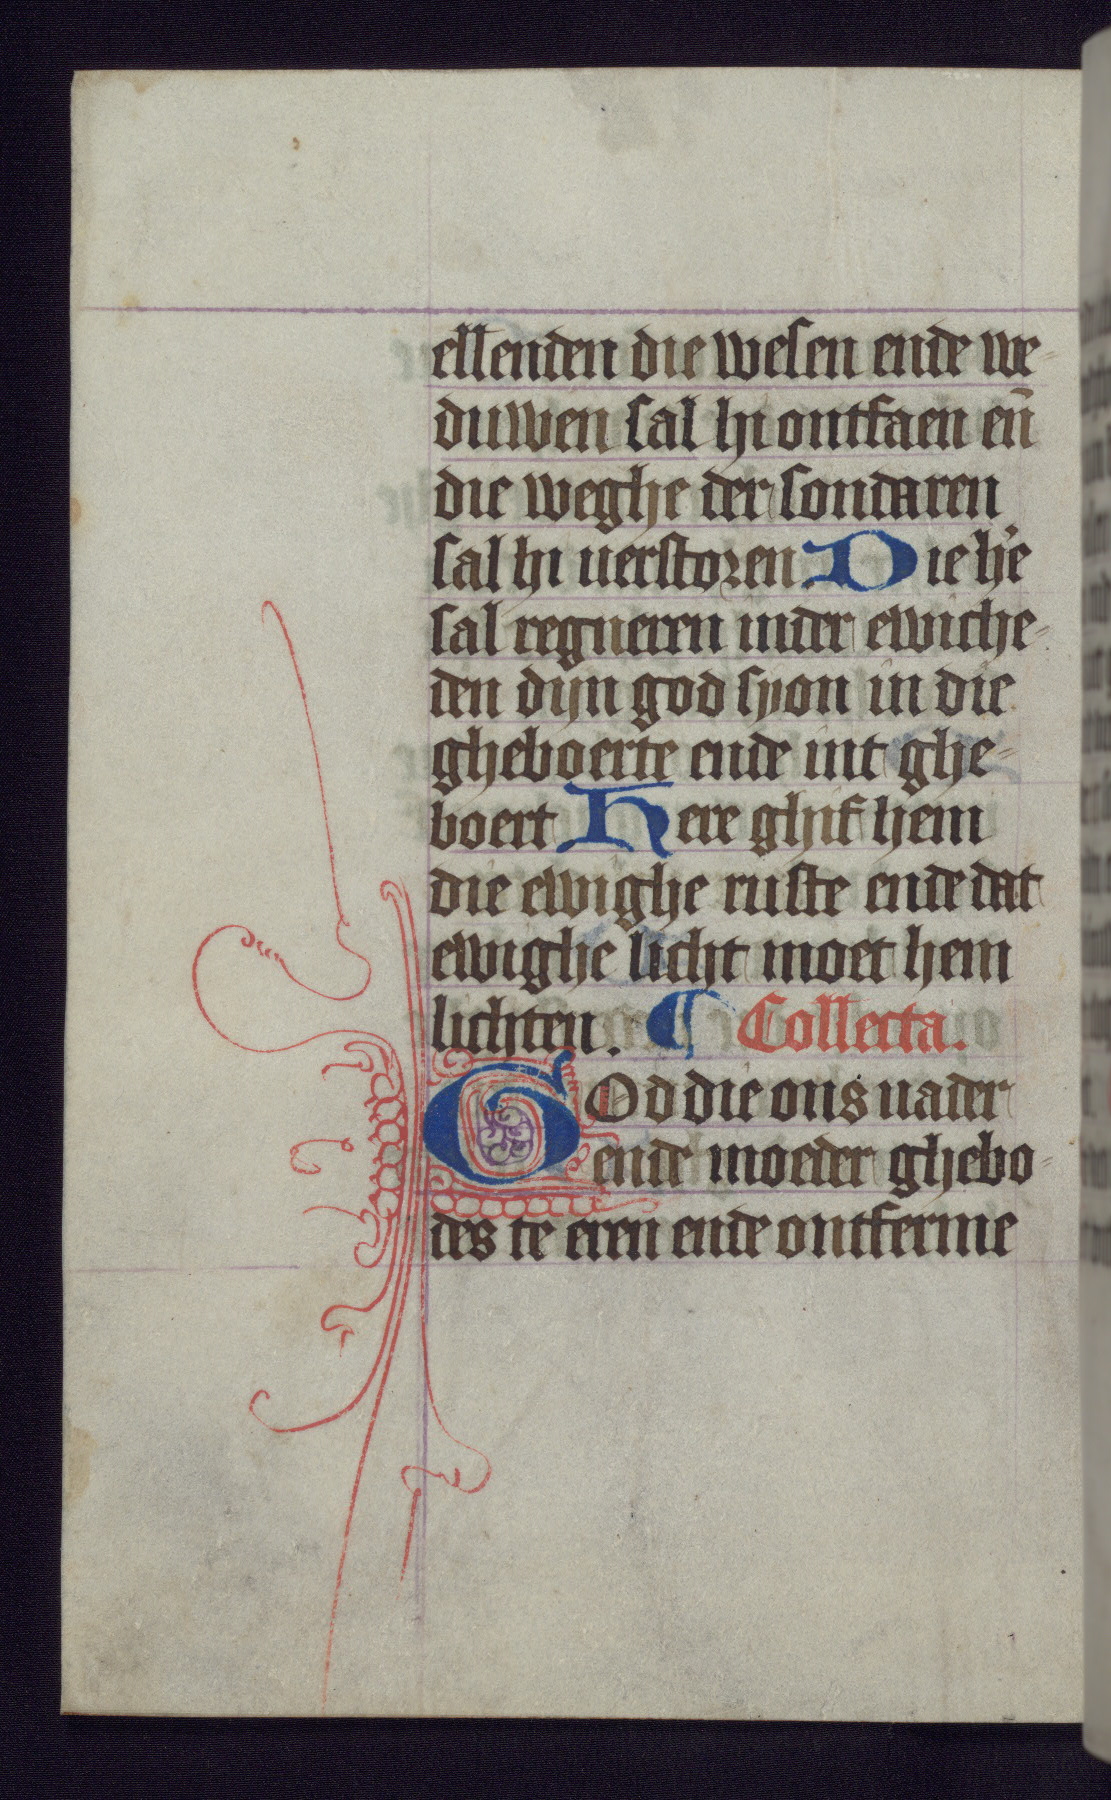 ellenden die wesen ende we-
duwen sal hi ontfaen en̄
die weghe der sondaren
sal hi verstoren Die h'e
sal regneren inder ewiche-
den dijn god syon in die
gheboerte ende int ghe-
boert Here ghif hem
die ewighe ruste ende dat
ewighe licht moet hem
lichten. ¶ Collecta.
GOd die ons vader
ende moeder ghebo-
des te eren ende ontferme